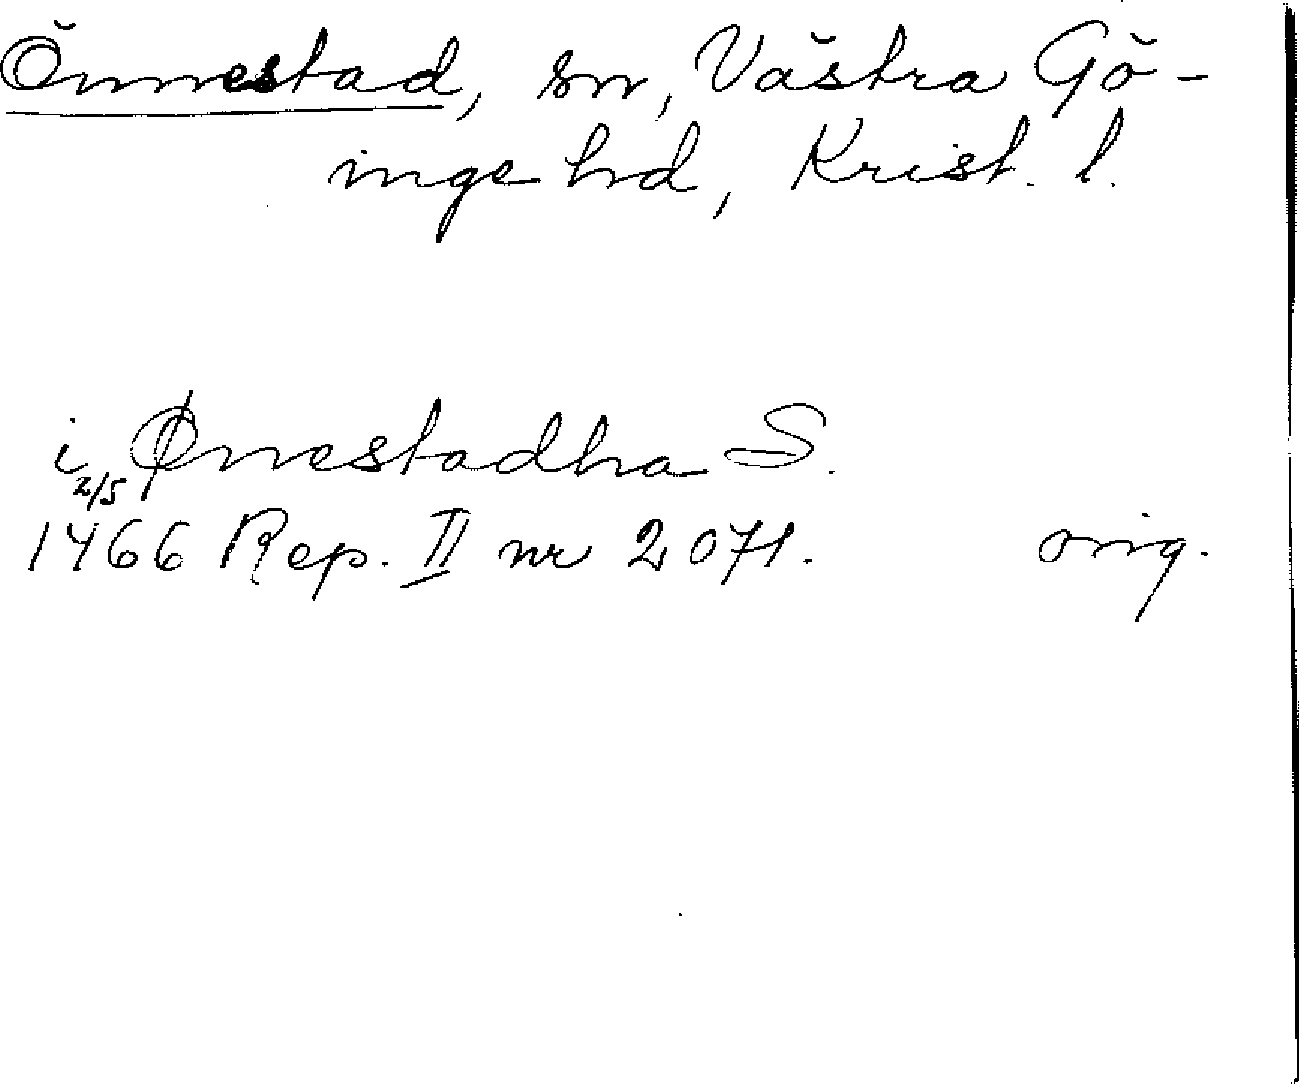 Önnestad, sn, Västra Gö-
inge hd, Krist. l.
i Ønestadha S.
2/5
1466 Rep. II nr 2071. orig.